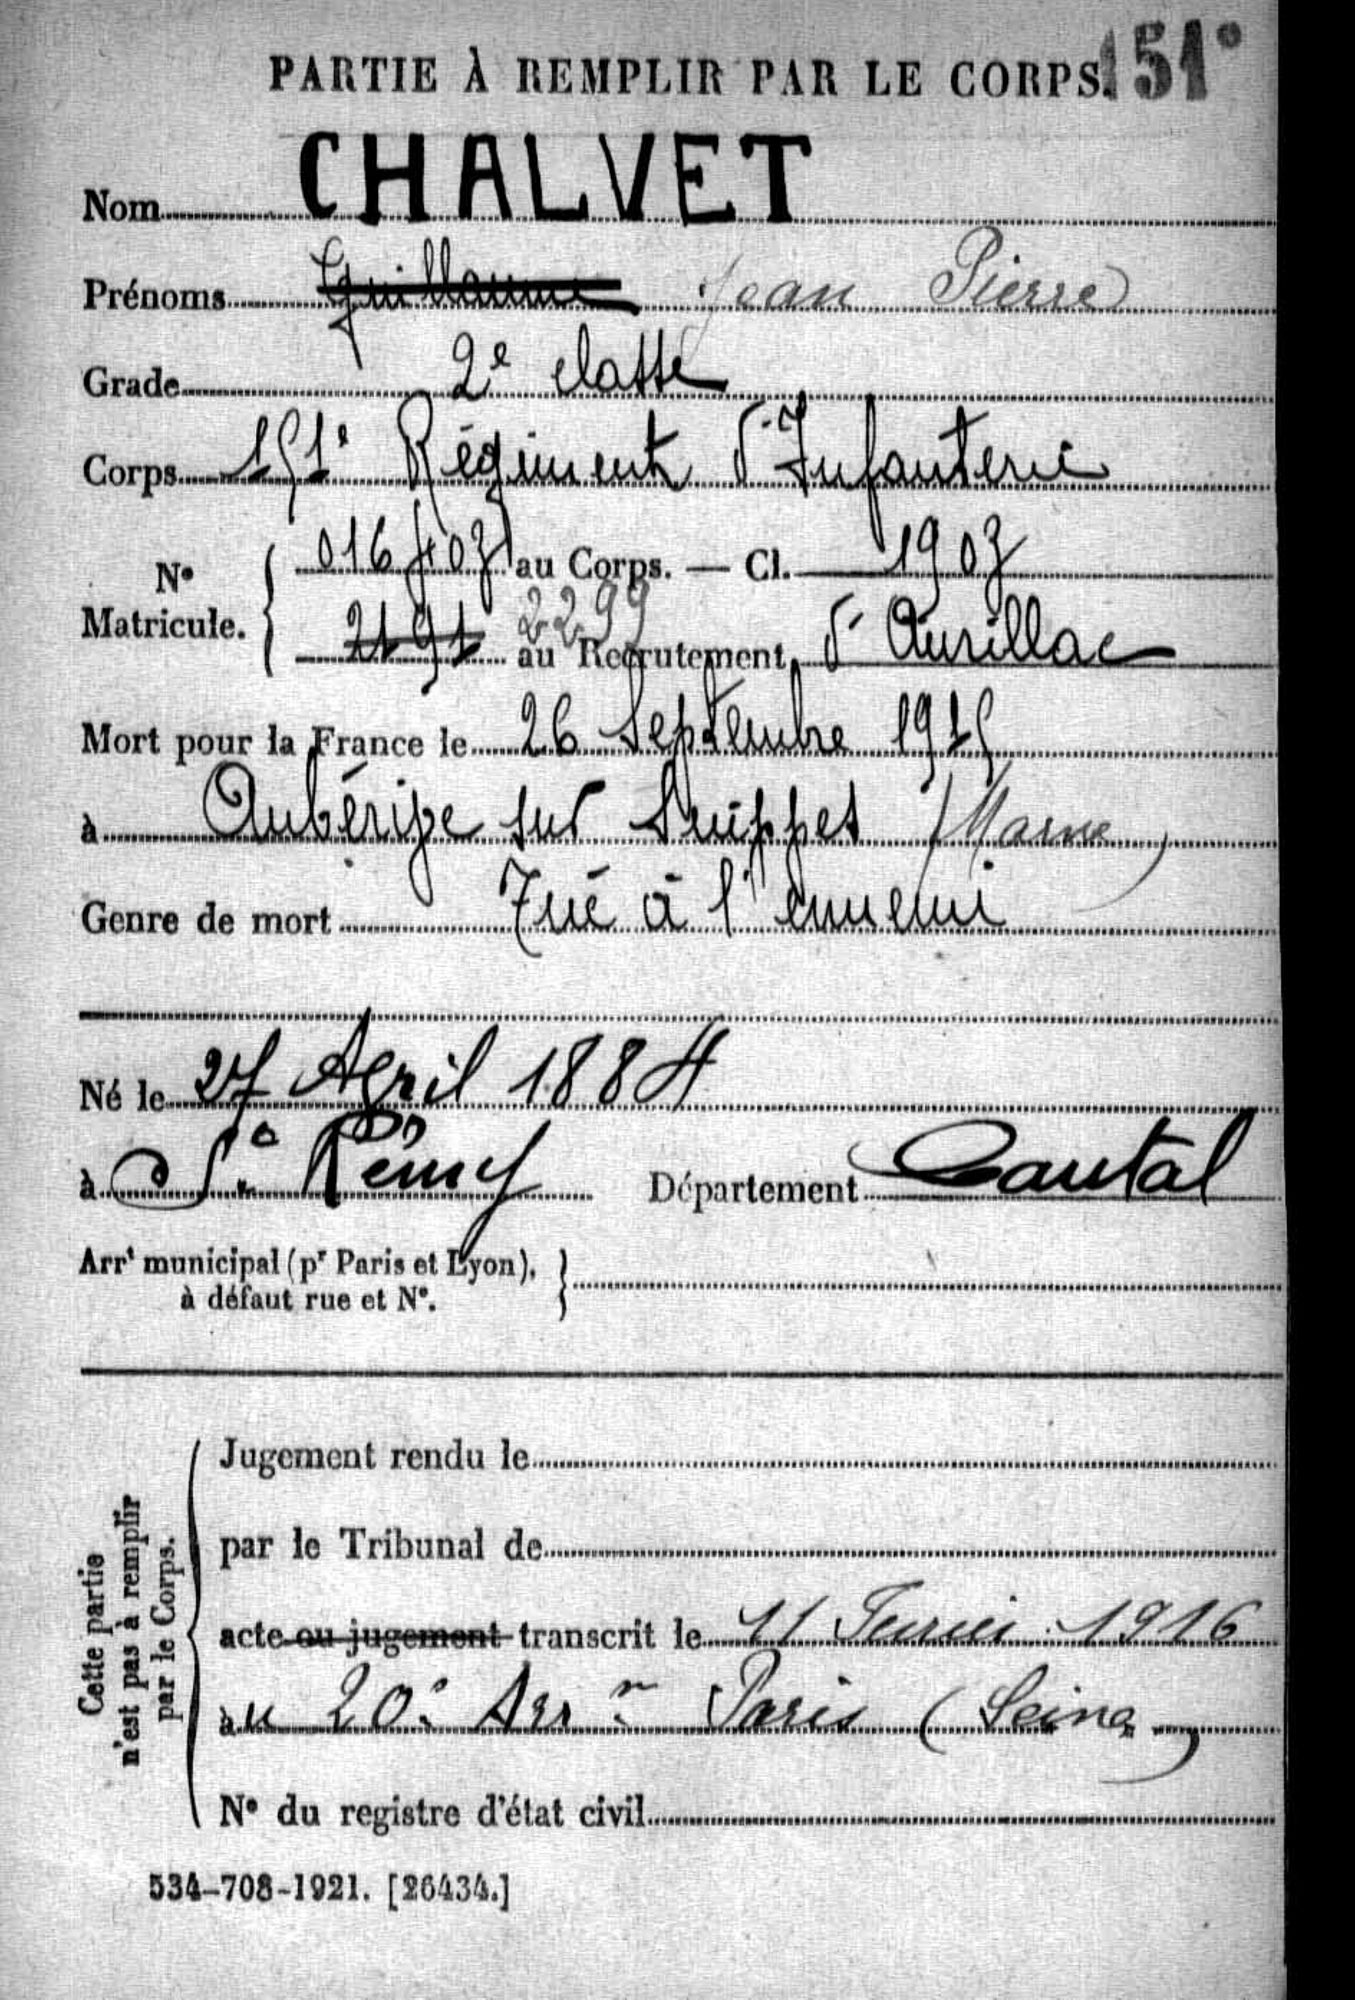 PARTIE À REMPLIR PAR LE CORPS. 151°
Nom CHALVET
Prénoms Guillaume Jean Pierre
Grade 2e classe
Corps 151e Régiment d'Infanterie
N° Matricule. { 016407 au Corps. — Cl. 1907
2191 2299 au Recrutement d'Aurillac
Mort pour la France le 26 Septembre 1915
à Aubérive sur Suippes (Marne)
Genre de mort Tué à l'ennemi
Né le 27 Avril 1884
à St Rémy Département Cantal
Arrt municipal (pr Paris et Lyon), à défaut rue et N°. }
Cette partie n'est pas à remplir par le Corps.
Jugement rendu le
par le Tribunal de
acte ou jugement transcrit le 11 Février 1916
au 20e Arrt Paris (Seine)
N° du registre d'état civil
534-708-1921. [26434.]